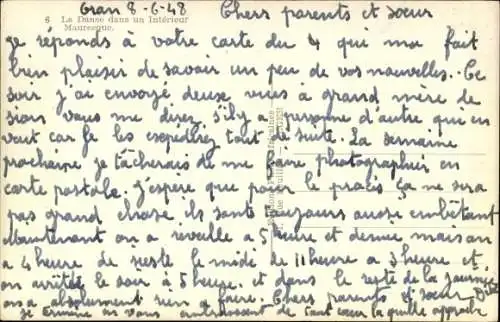 Oran 8-6-48 Chers parents et sœur
6 La Danse dans un Intérieur
Mauresque.
je réponds à votre carte du 4 qui ma fait
bien plaisir de savoir un peu de vos nouvelles. Ce
soir j'ai envoyé deux vues à grand mère de
sions vous me direz s'il y a personne d'autre que en
veut car je les expédirez tout de suite. La semaine
prochaine je tâcherais de me faire photographier en
carte postale. j'espère que pour le procès ça ne sera
pas grand chose ils sont toujours aussi embêtant
Maintenant on a réveille a 5 heure et demie mais on
a 4 heure de sieste le midi de 11 heure a 3 heure et
on arrête le soir à 5 heure. et dans le reste de la journée
on a absolument rien a faire. Chers parents et sœur
je termine en vous embrassant de tout cœur la quille approche